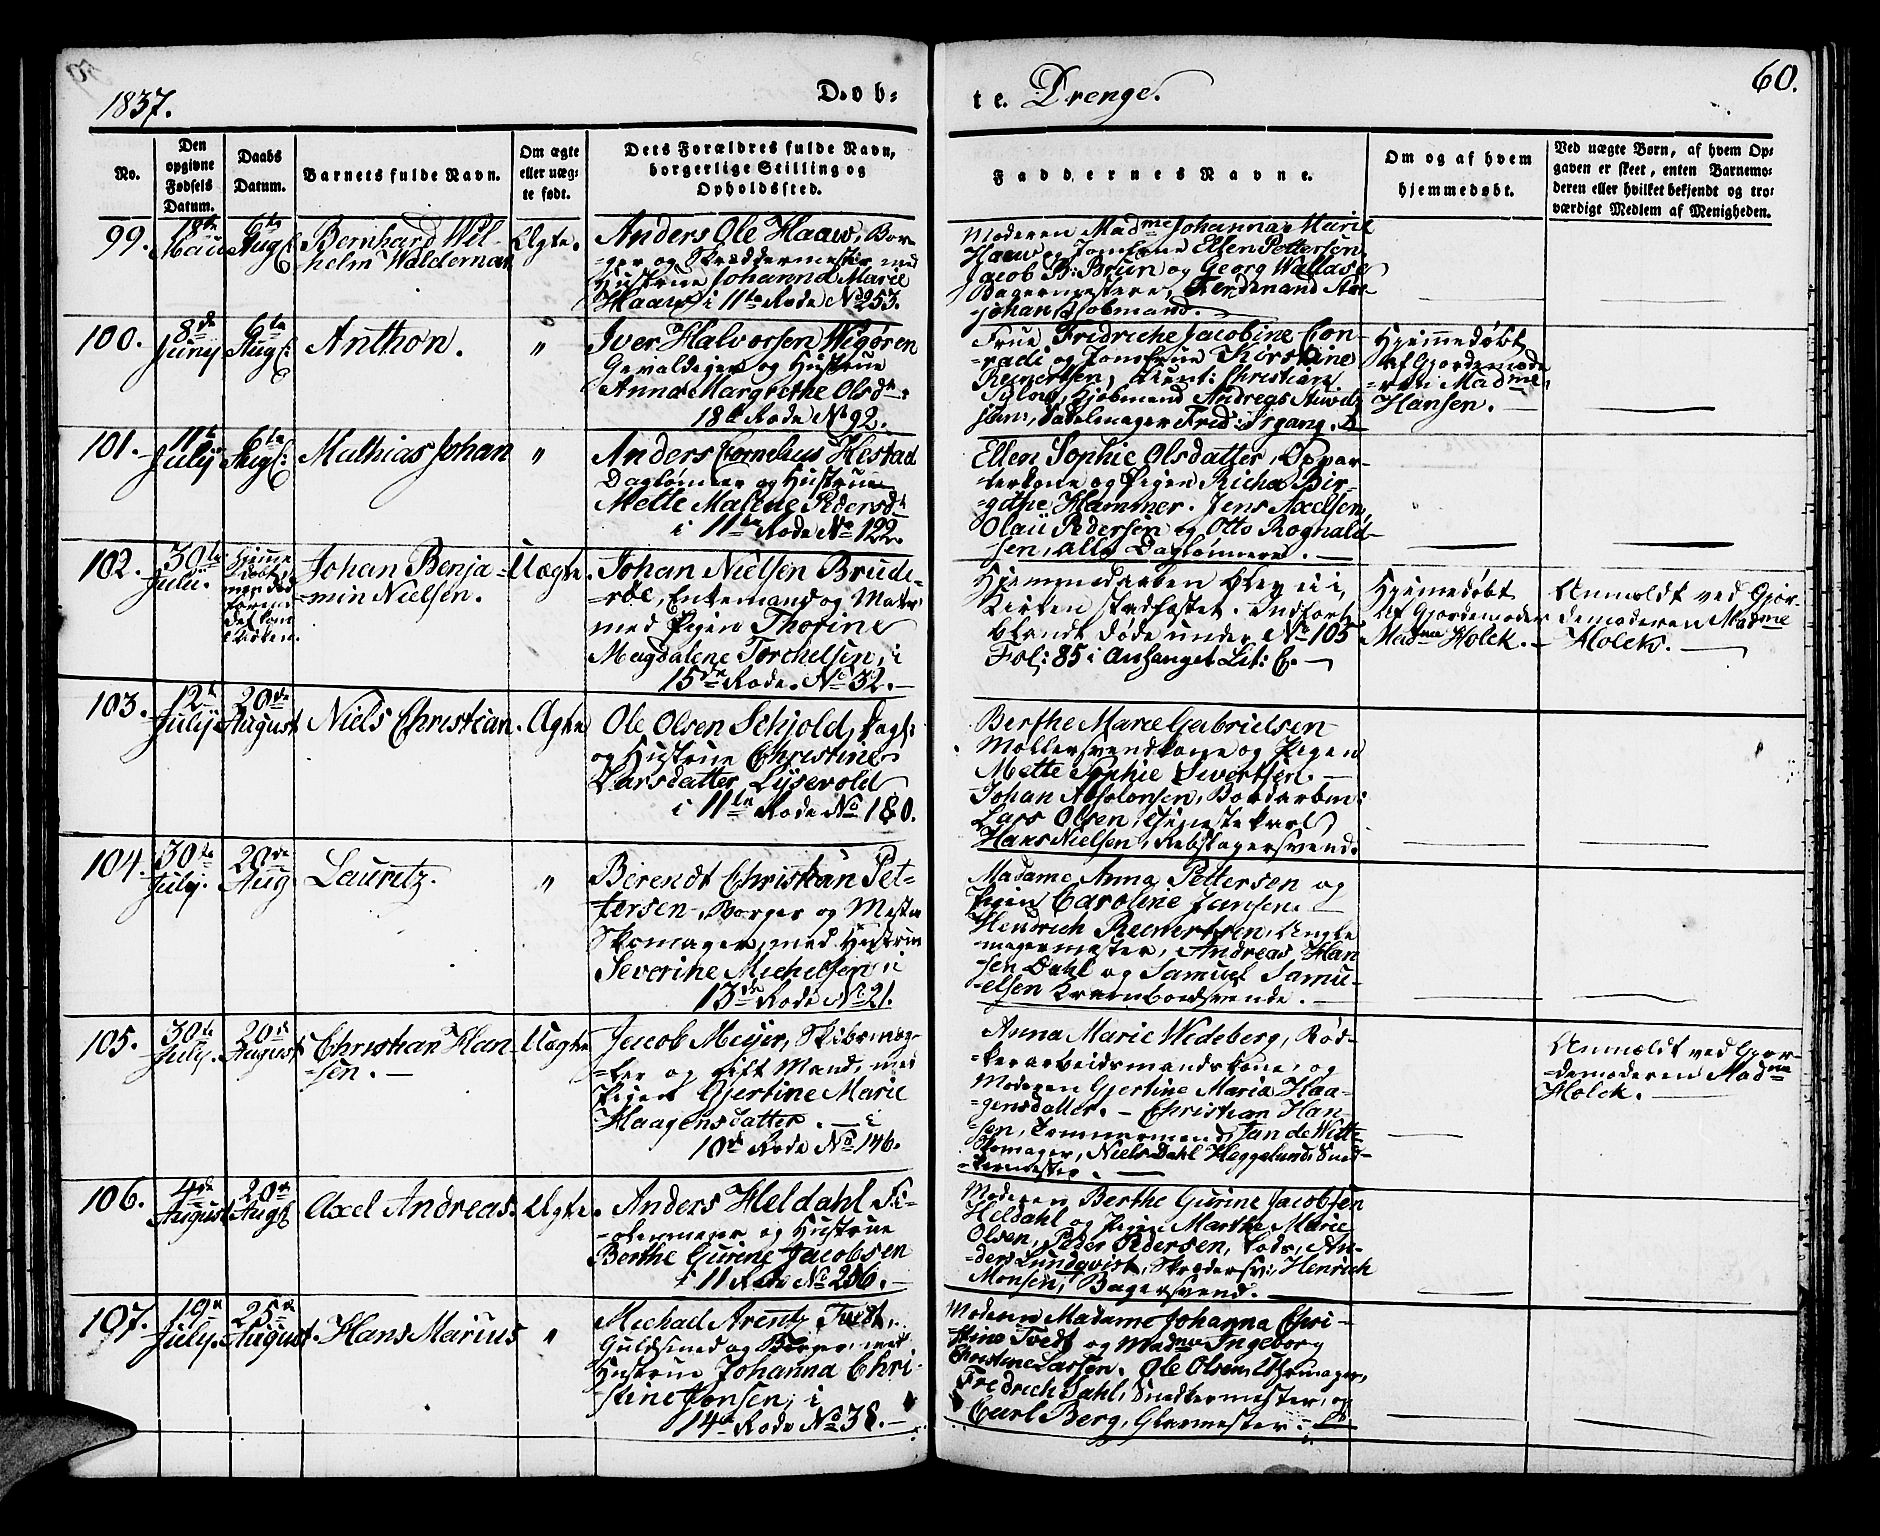 1837.
Døb-
te. Drenge.
60.
No.
Den opgivne Fødsels Datum.
Daabs Datum.
Barnets fulde Navn.
Om ægte eller uægte født.
Dets Forældres fulde Navn, borgerlige Stilling og Opholdssted.
Faddernes Navne.
Om og af hvem hjemmedøbt.
Ved uægte Børn, af hvem Opgaven er skeet, enten Barnemoderen eller hvilket bekjendt og troværdigt Medlem af Menigheden.
99.
18de
Maii
6te
Aug.
Bernhard Wil-
helm Waldemar
Ægte.
Anders Ole Haaw, Bor-
ger og Skræddermester med
Hustrue Johanna Marie
Haaw i 11te Rode No 253.
Moderen Madme Johanna Marie
Haaw og Jomfrue Ellen Pettersen
Jacob B. Brun og Georg Wallase
Bagermestere, Ferdinand
Johan
100.
8de
Juny
6te
Aug:
Anthon.
"
Iver Halvorsen Wigøren
Gevaldiger og Hustrue
Anna Margrethe Olsdr.
18de Rode No 92.
Frue Fredriche Jacobine Con-
radi og Jomfrue Kirstine
Reinertsen, Christian
Andreas
Sadelmager Fred: Irgang.
Hjemmedøbt
af Gjordemode-
ren Madme
Hansen.
101.
11te
July
6te
Aug:
Mathias Johan
"
Anders Cornelius Hestad
Daglønner og Hustrue
Mette Malene Pedersdr
i 11te Rode No 122.
Ellen Sophie Olsdatter, Oppar-
terkone og Pigen Richa Bir-
githe Hammer. Jens Axelsen,
Olaii Pedersen og Otto Rognald-
sen, alle Daglønnere.
102.
30te
Juli.
Hjemme
døbt
død
forend
det kom
i Kirken.
Johan Benja-
min Nielsen.
Uægte.
Johan Nielsen Brude-
røe, Enkemand og Matr
med Pigen Thorine
Magdalene Torchelsen, i
15de Rode. No 32.
Hjemmedaaben blev ei i
Kirken stadfæstet. Indført
blandt døde under No 105
Fol: 85 i Anhanget Lit: C.
Hjemedøbt
af Gjordemoder
Madme Holck.
Anmeldt ved Gjor-
demoderen Madme
Holck.
103.
12te
July
20de
August
Niels Christian.
Ægte
Ole Olsen Schjold, Dagl:
og Hustrue Christine
Larsdatter Lysevold
i 11te Rode No 180.
Berthe Marie Gabrielsen
Møllersvendkone og Pigen
Mette Sophie Sivertsen.
Johan Absolonsen, Bordarbei:
Lars Olsen, Tjenestekarl
Hans Nielsen, Rebslagersvend.
104.
30te
July.
20de
Aug.
Lauritz.
"
Berendt Christian Pet-
tersen, Borger og Mester
Skomager, med Hustrue
Severine Michelsen i
13de Rode No 21.
Madame Anna Pettersen og
Pigen Caroline Jansen.
Hendrich Reinertsen,
magermester, Andreas Han-
sen Dahl og Samuel Samu-
elsen Krambodsvende.
105.
30te
July.
20de
August
Christian Han-
sen.
Uægte
Jacob Meyer, Skibsmæg-
ler og gift Mand, med
Pigen Gjertine Marie
Haagensdatter. i
10de Rode No 146.
Anna Marie Wedeberg, Bød-
kerarbeidsmandskone, og
Moderen Gjertine Maria Haa-
gensdatter. Christian Han-
sen, Tømmermand, Jan de Witt
Skomager, Niels Dahl Heggelund, Sned-
kermester.
Anmeldt ved Gjor-
demoderen Madme
Holck.
106.
4de
August
20de
Aug
Axel Andreas.
Ægte.
Anders Heldahl
og Hustrue
Berthe Gurine Jacobsen
i 11 Rode No 256.
Moderen Berthe Gurine Jacobsen
Heldahl og Pigen Marthe Marie
Olsen, Peder Pedersen, Lods, An-
ders Lundqvist, Skrædersv:, Henrich
Monsen, Bagersvend.
107.
19de
July.
25de
August.
Hans Marius
"
Michael Arentz Tvedt,
Guldsmed og Borger, med
Hustrue Johanna Chri-
stine Jonsen, i
14de Rode No 38.
Moderen Madame Johanna Chri-
stine Tvedt og Madme Ingeborg
Christine Larsen. Ole Olsen, Uhrmager,
Fredrich Dahl, Snedkermester, og
Carl Berg, Glarmester.